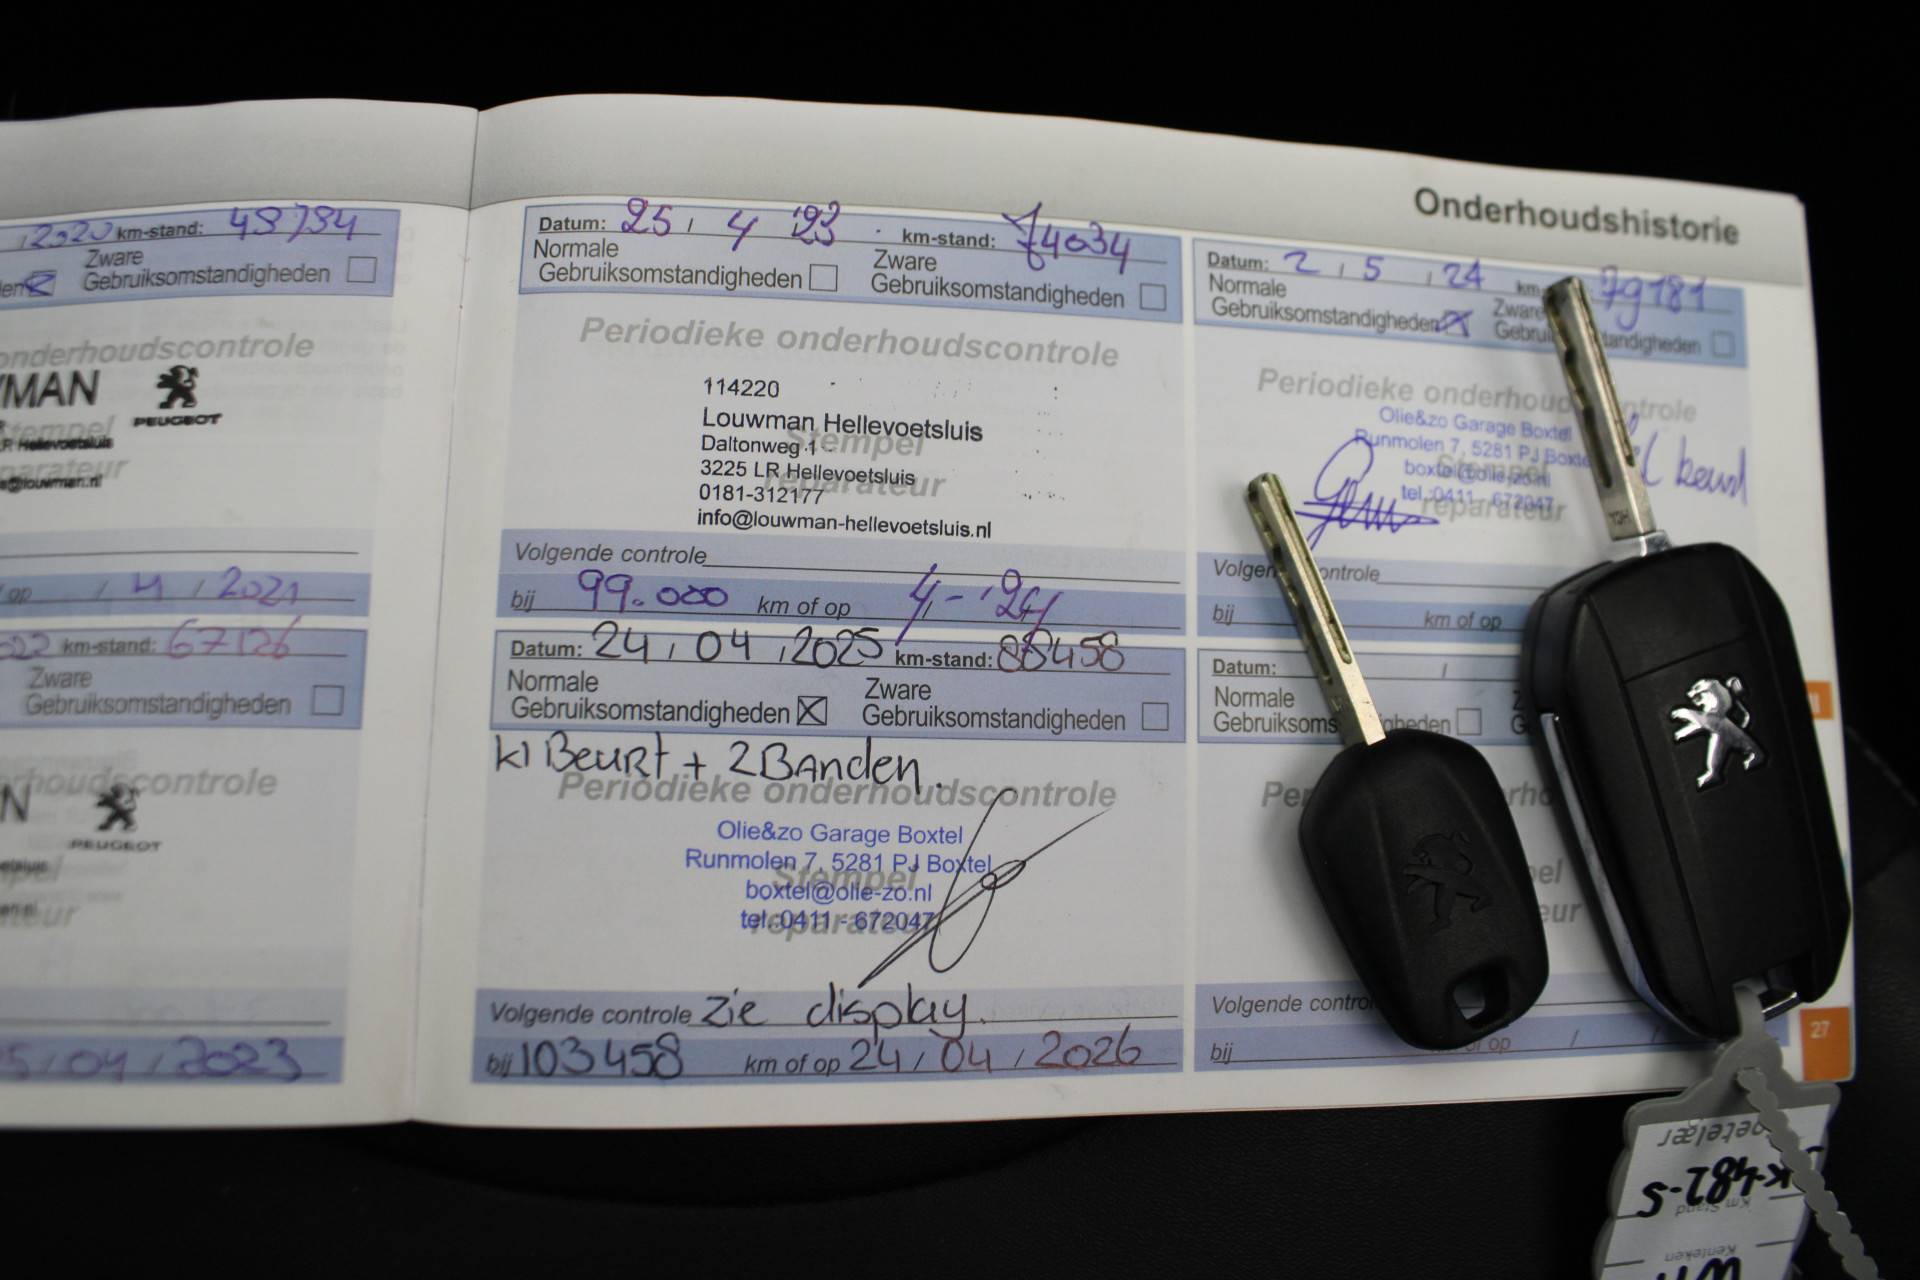 Onderhoudshistorie
2020 km-stand: 48794
Zware
Gebruiksomstandigheden
onderhoudscontrole
WMAN
PEUGEOT
Stempel
LR Hellevoetsluis
parateur
@louwman.nl
op / 4 / 2021
km-stand: 67126
Zware
Gebruiksomstandigheden
rhoudscontrole
N
PEUGEOT
5/04/2023
Datum: 25 / 4 '23 km-stand: 74034
Normale
Gebruiksomstandigheden
Zware
Gebruiksomstandigheden
Periodieke onderhoudscontrole
114220
Louwman Hellevoetsluis
Daltonweg 1
3225 LR Hellevoetsluis
0181-312177
info@louwman-hellevoetsluis.nl
Stempel
reparateur
Volgende controle
bij 99.000 km of op 4-'24
Datum: 24 / 04 / 2025 km-stand: 88458
Normale
Gebruiksomstandigheden
Zware
Gebruiksomstandigheden
kl Beurt + 2 Banden.
Periodieke onderhoudscontrole
Olie&zo Garage Boxtel
Runmolen 7, 5281 PJ Boxtel
boxtel@olie-zo.nl
tel.:0411 - 672047
Stempel
reparateur
Volgende controle zie display.
bij 103458 km of op 24 / 04 / 2026
Datum: 2 / 5 / 24 km 79181
Normale
Gebruiksomstandigheden
Zware
Gebruiksomstandigheden
Periodieke onderhoudscontrole
Olie&zo Garage Boxtel
Runmolen 7, 5281 PJ Boxtel
boxtel@olie-zo.nl
tel.:0411 - 672047
Stempel
reparateur
beurt
Volgende controle
bij km of op
Datum: /
Normale
Gebruiksomstandigheden
Volgende controle
bij km of op / /
27
Km Stand
Kenteken